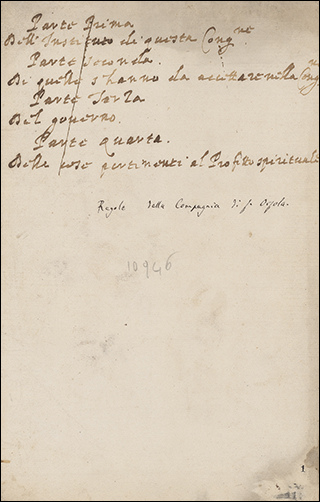 Parte Prima
Dell'Instituto di questa Congne
Parte Seconda.
Di quelli s'hanno da accettare nella Congne
Parte Terza
Del governo.
Parte quarta.
Delle cose pertinenti al Profitto spirituale
Regole della Compagnia di S. Orsola.
10946
1